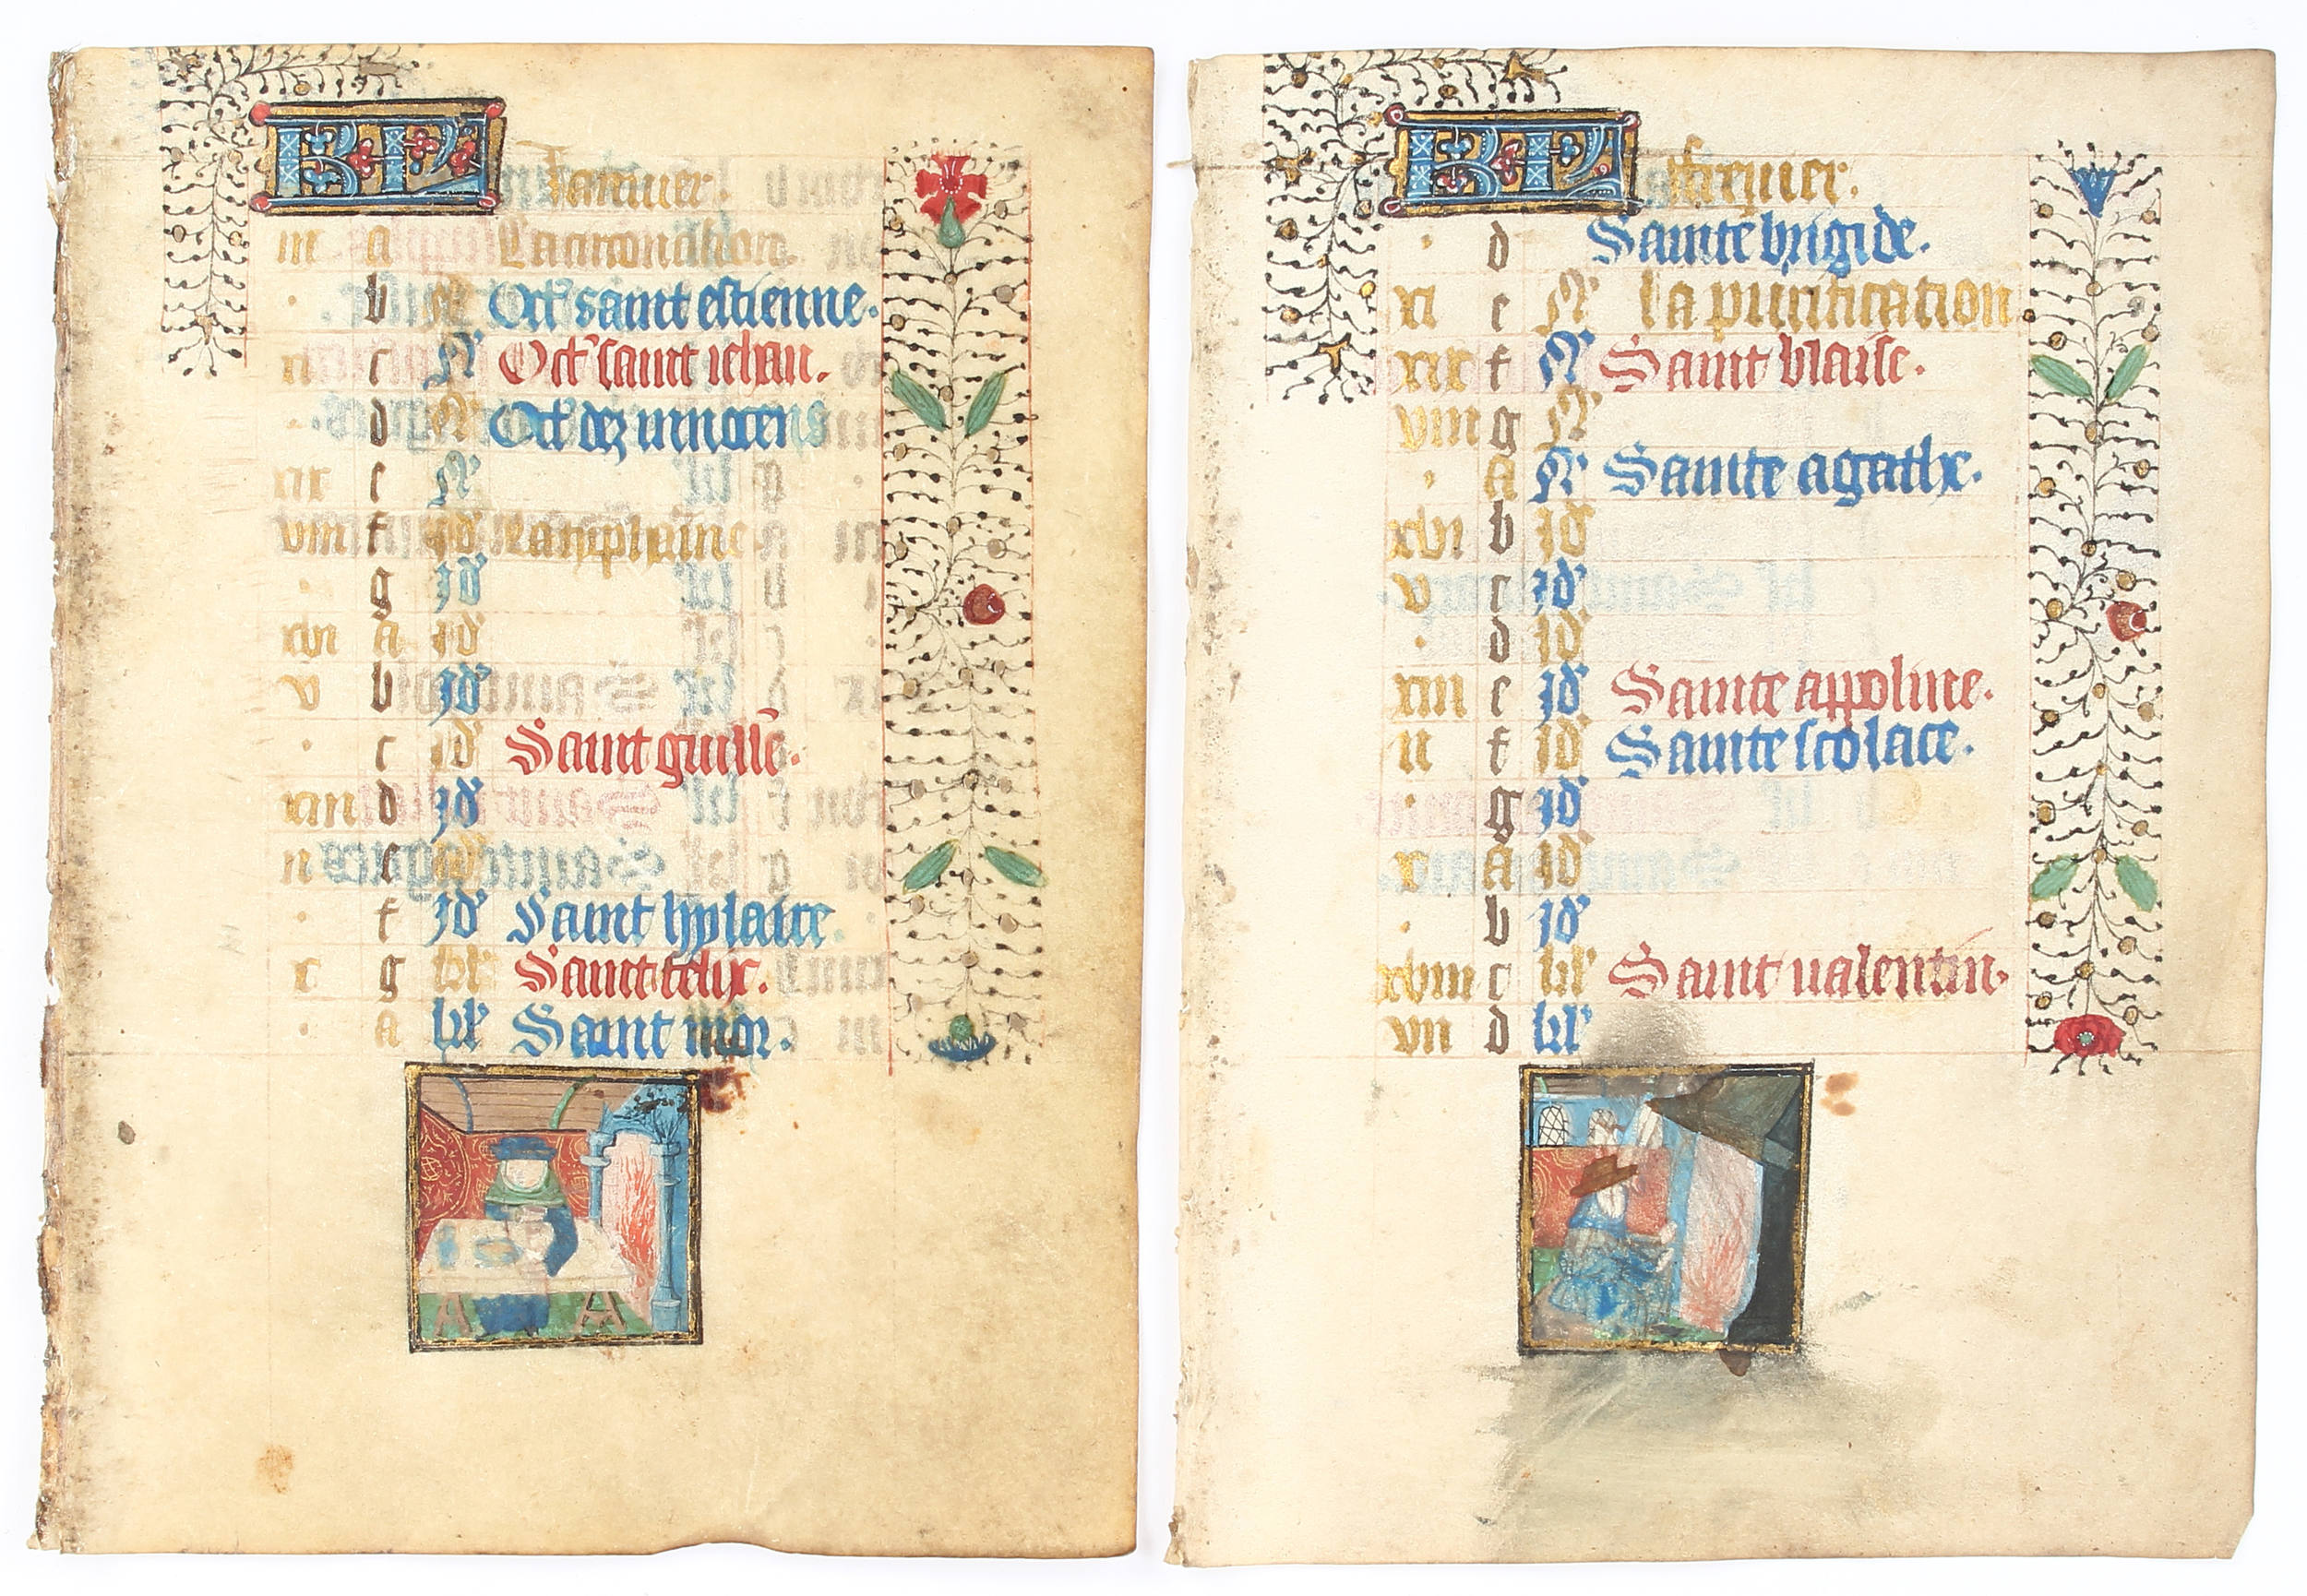 KL Januier.
iii a La circoncision.
. b Oct' saint estienne.
xi c N' Oct' saint iehan.
. d N' Oct' dez innocens
xix e N'
viii f id' La tiphaine
. g id'
xvi a id'
v b id'
. c id' Saint guille.
xiii d id'
ii e id'
. f id' Saint hylaire.
x g kl' Saint felix.
. a kl' Saint mor.
KL feurier.
. d Sainte brigide.
xi e N' la purification
xix f N' Saint blaise.
viii g N'
. a N' Sainte agathe.
xvi b id'
v c id'
. d id'
xiii e id' Sainte appoline.
ii f id' Sainte scolace.
. g id'
x a id'
. b id'
xviii c kl' Saint ualentin.
vii d kl'